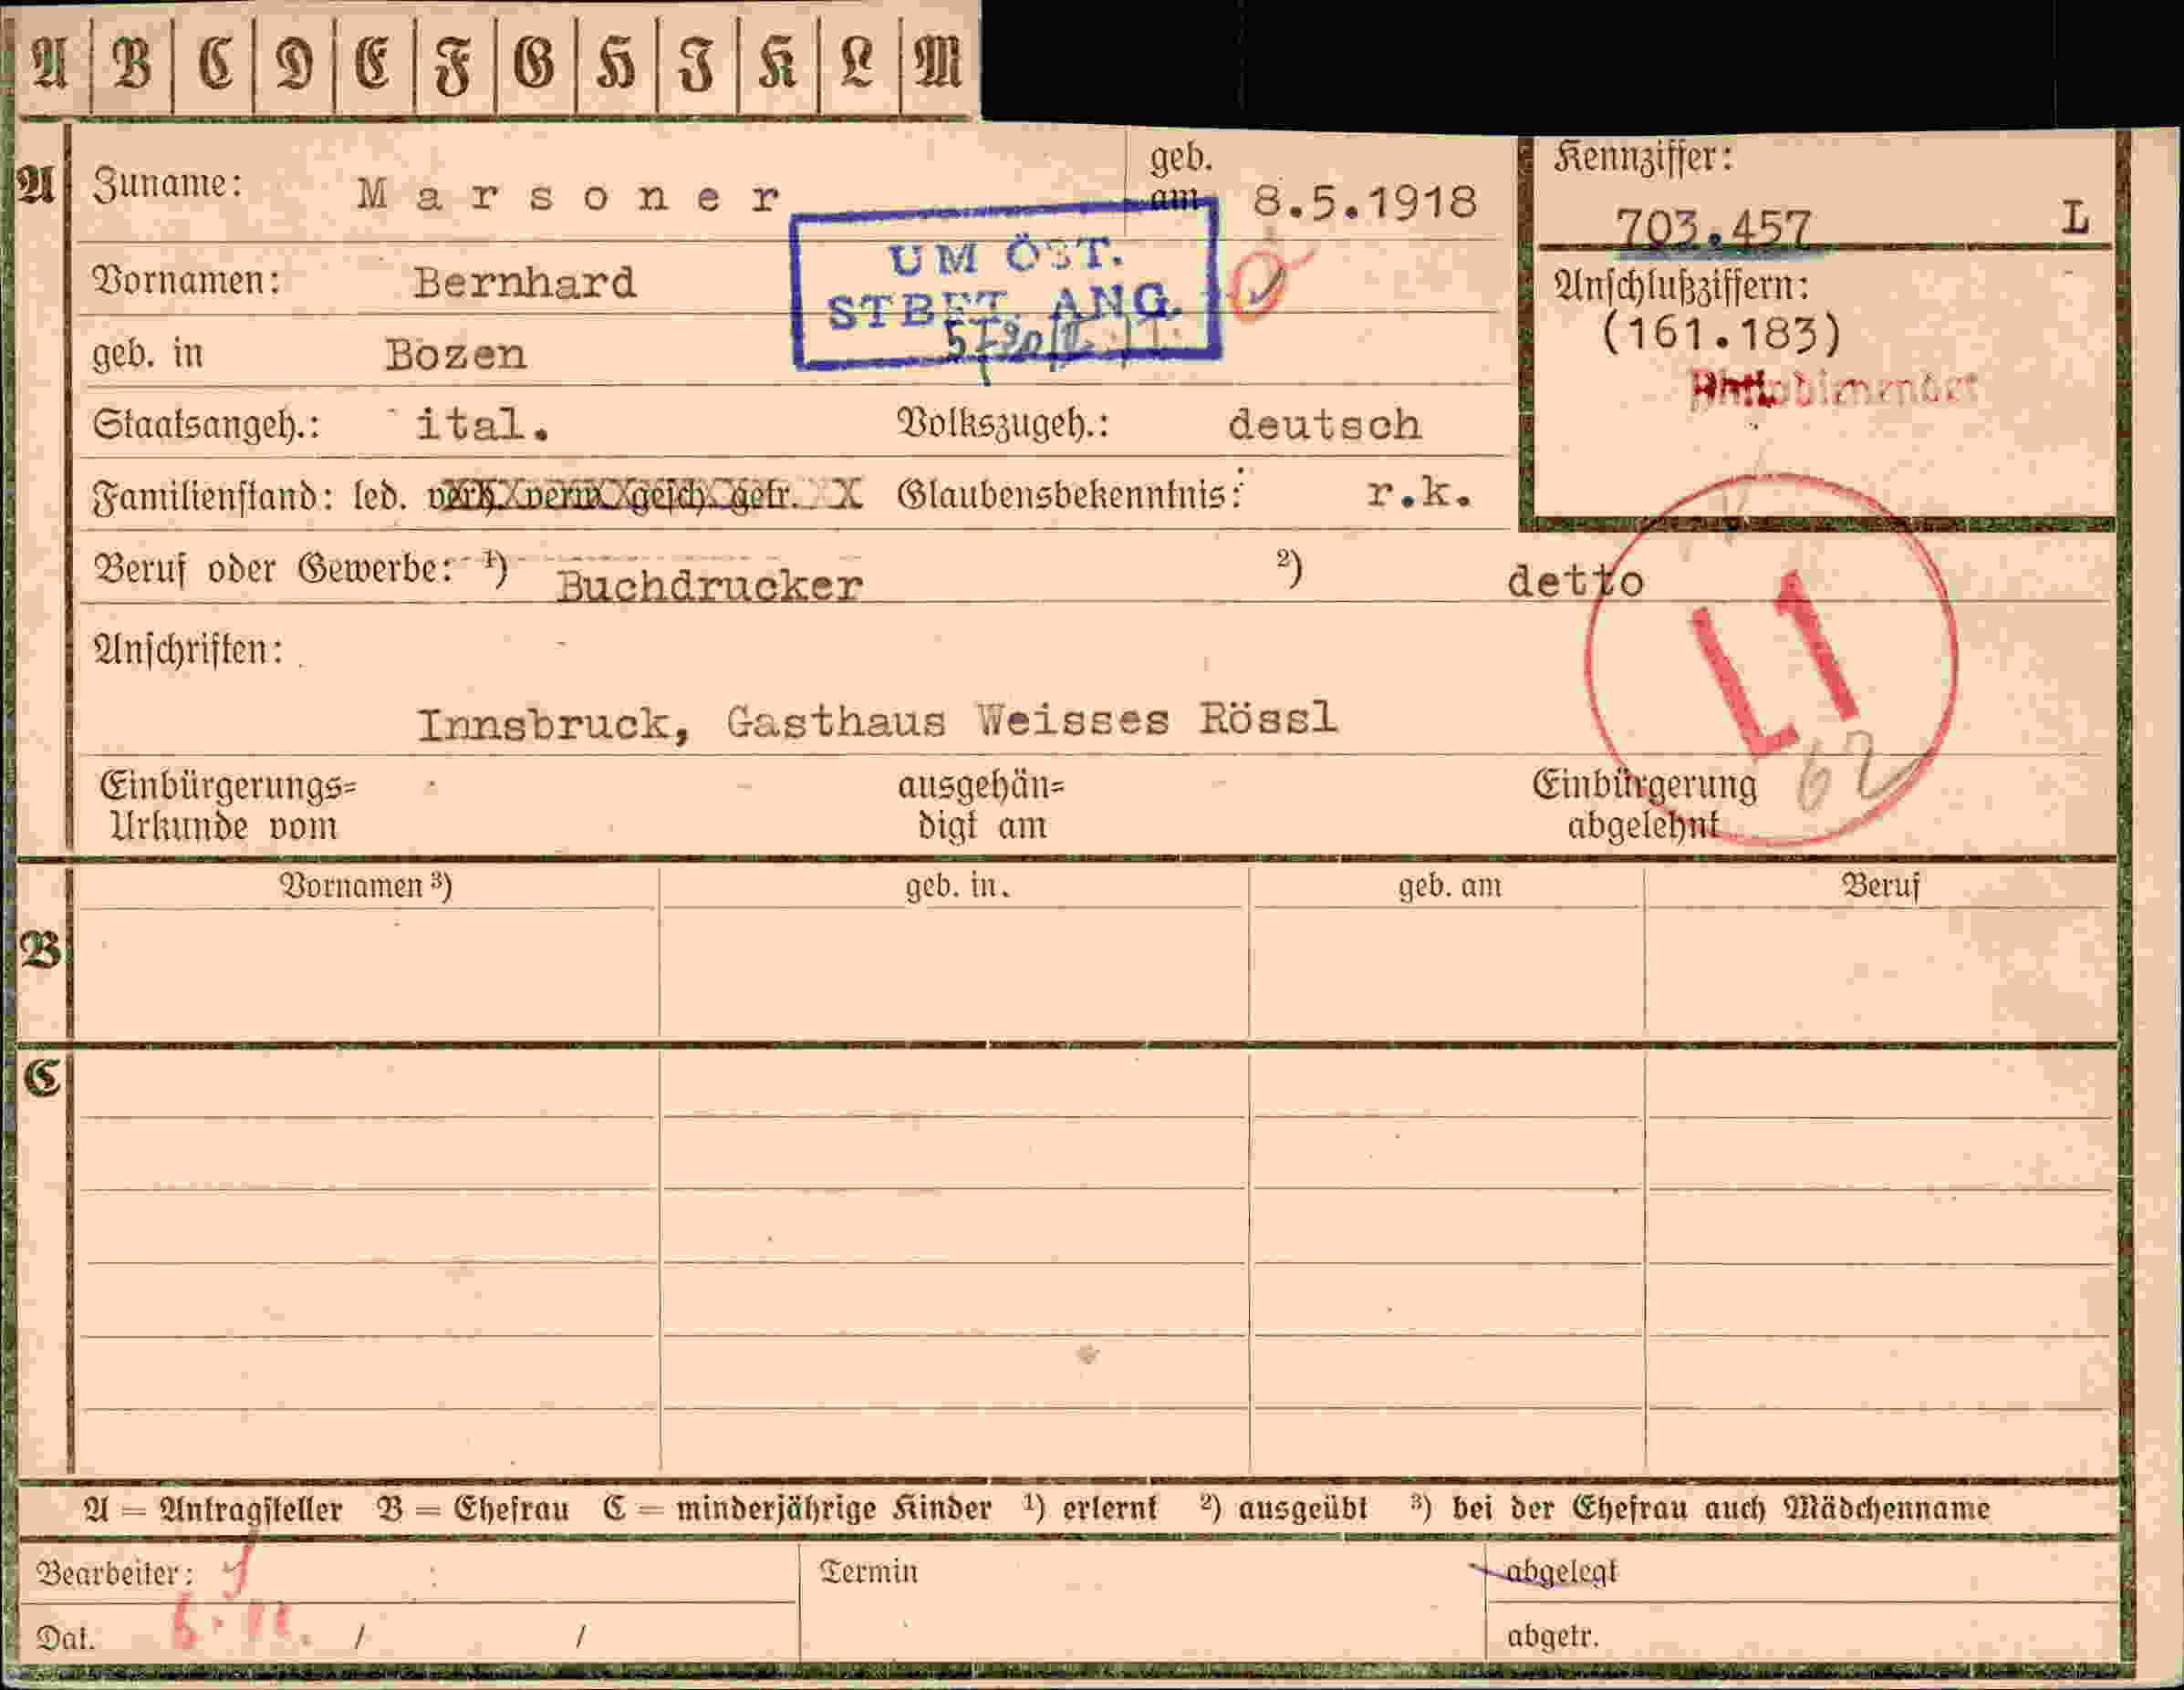 A B C D E F G H I K L M
A Zuname: Marsoner geb. am 8.5.1918 Kennziffer: 703.457 L
UM ÖST. STBET. ANG.
Vornamen: Bernhard
Anschlußziffern: (161.183)
geb. in Bozen
Staatsangeh.: ital. Volkszugeh.: deutsch
Familienstand: led. verh. verw. gesch. getr. X Glaubensbekenntnis: r.k.
Beruf oder Gewerbe: 1) Buchdrucker 2) detto
L1
Anschriften:
Innsbruck, Gasthaus Weisses Rössl
62
Einbürgerungs= Urkunde vom ausgehän= digt am Einbürgerung abgelehnt
Vornamen 3) geb. in. geb. am Beruf
B
C
A = Antragsteller B = Ehefrau C = minderjährige Kinder 1) erlernt 2) ausgeübt 3) bei der Ehefrau auch Mädchenname
Bearbeiter: Termin abgelegt
Dat. / / abgetr.